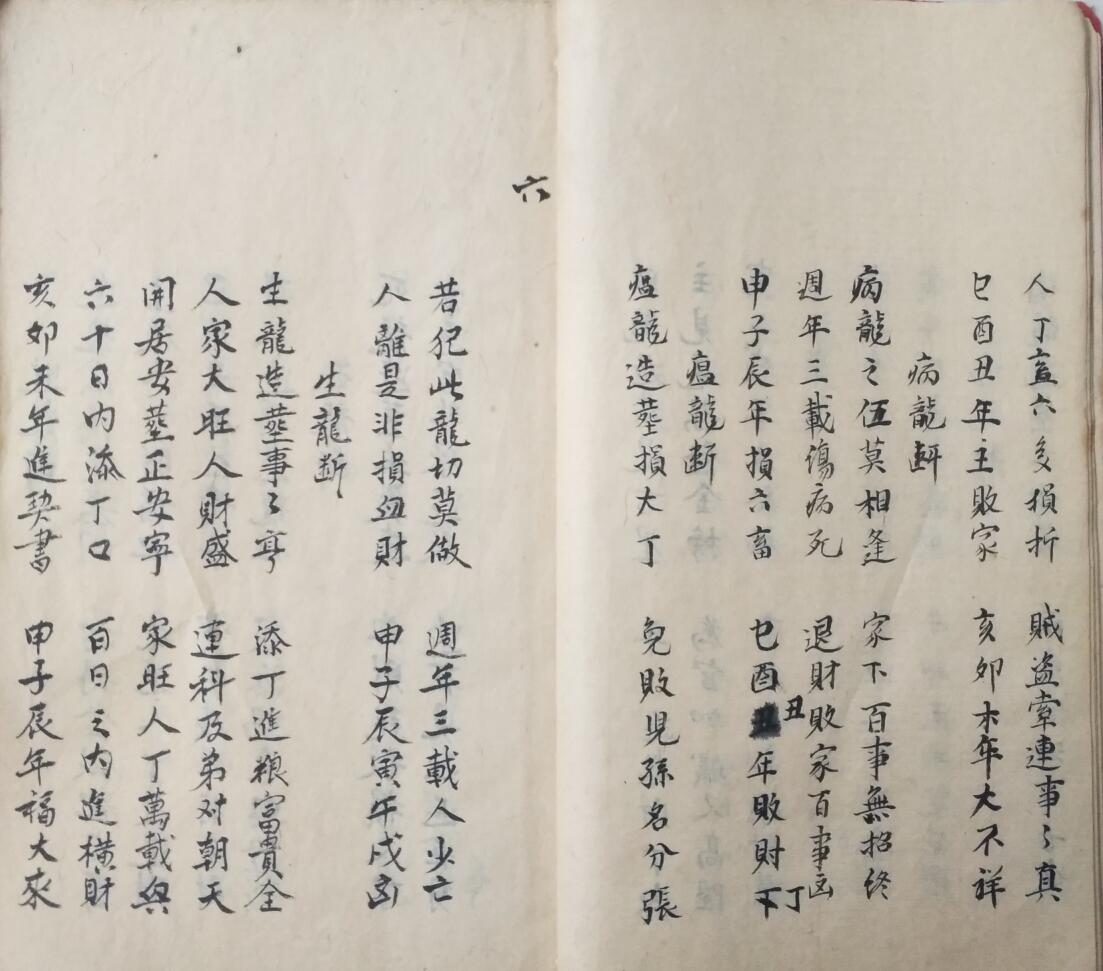 人丁畜六多損折　賊盜牽連事々真
巳酉丑年主敗家　亥卯未年大不祥
病龍斷
病龍之伍莫相逢　家下百事無招終
週年三載傷病死　退財敗家百事凶
申子辰年損六畜　巳酉丑年敗財丁
瘟龍斷
瘟龍造塟損大丁　兒孫名分張
六
若犯此龍切莫做　週年三載人少亡
人離是非損血財　申子辰寅午戌凶
生龍斷
生龍造塟事々亨　添丁進粮富貴全
人家大旺人財盛　連科及弟对朝天
開居安塟正安寧　家旺人丁萬載興
六十日内添丁口　百日之内進橫財
亥卯未年進契書　申子辰年福大來